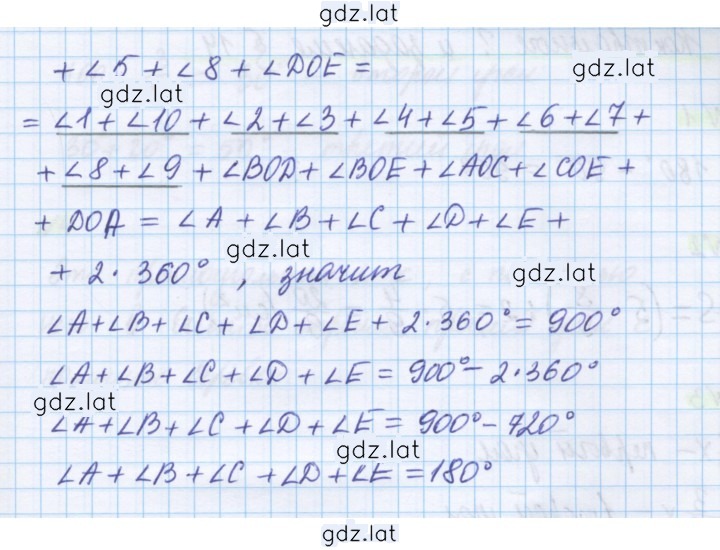 gdz.lat
+ ∠5 + ∠8 + ∠DOE =
gdz.lat
gdz.lat
= ∠1 + ∠10 + ∠2 + ∠3 + ∠4 + ∠5 + ∠6 + ∠7 +
+ ∠8 + ∠9 + ∠BOD + ∠BOE + ∠AOC + ∠COE +
+ DOA = ∠A + ∠B + ∠C + ∠D + ∠E +
gdz.lat
+ 2 · 360° , значит
gdz.lat
∠A + ∠B + ∠C + ∠D + ∠E + 2 · 360° = 900°
∠A + ∠B + ∠C + ∠D + ∠E = 900° - 2 · 360°
gdz.lat
∠A + ∠B + ∠C + ∠D + ∠E = 900° - 720°
gdz.lat
∠A + ∠B + ∠C + ∠D + ∠E = 180°
gdz.lat